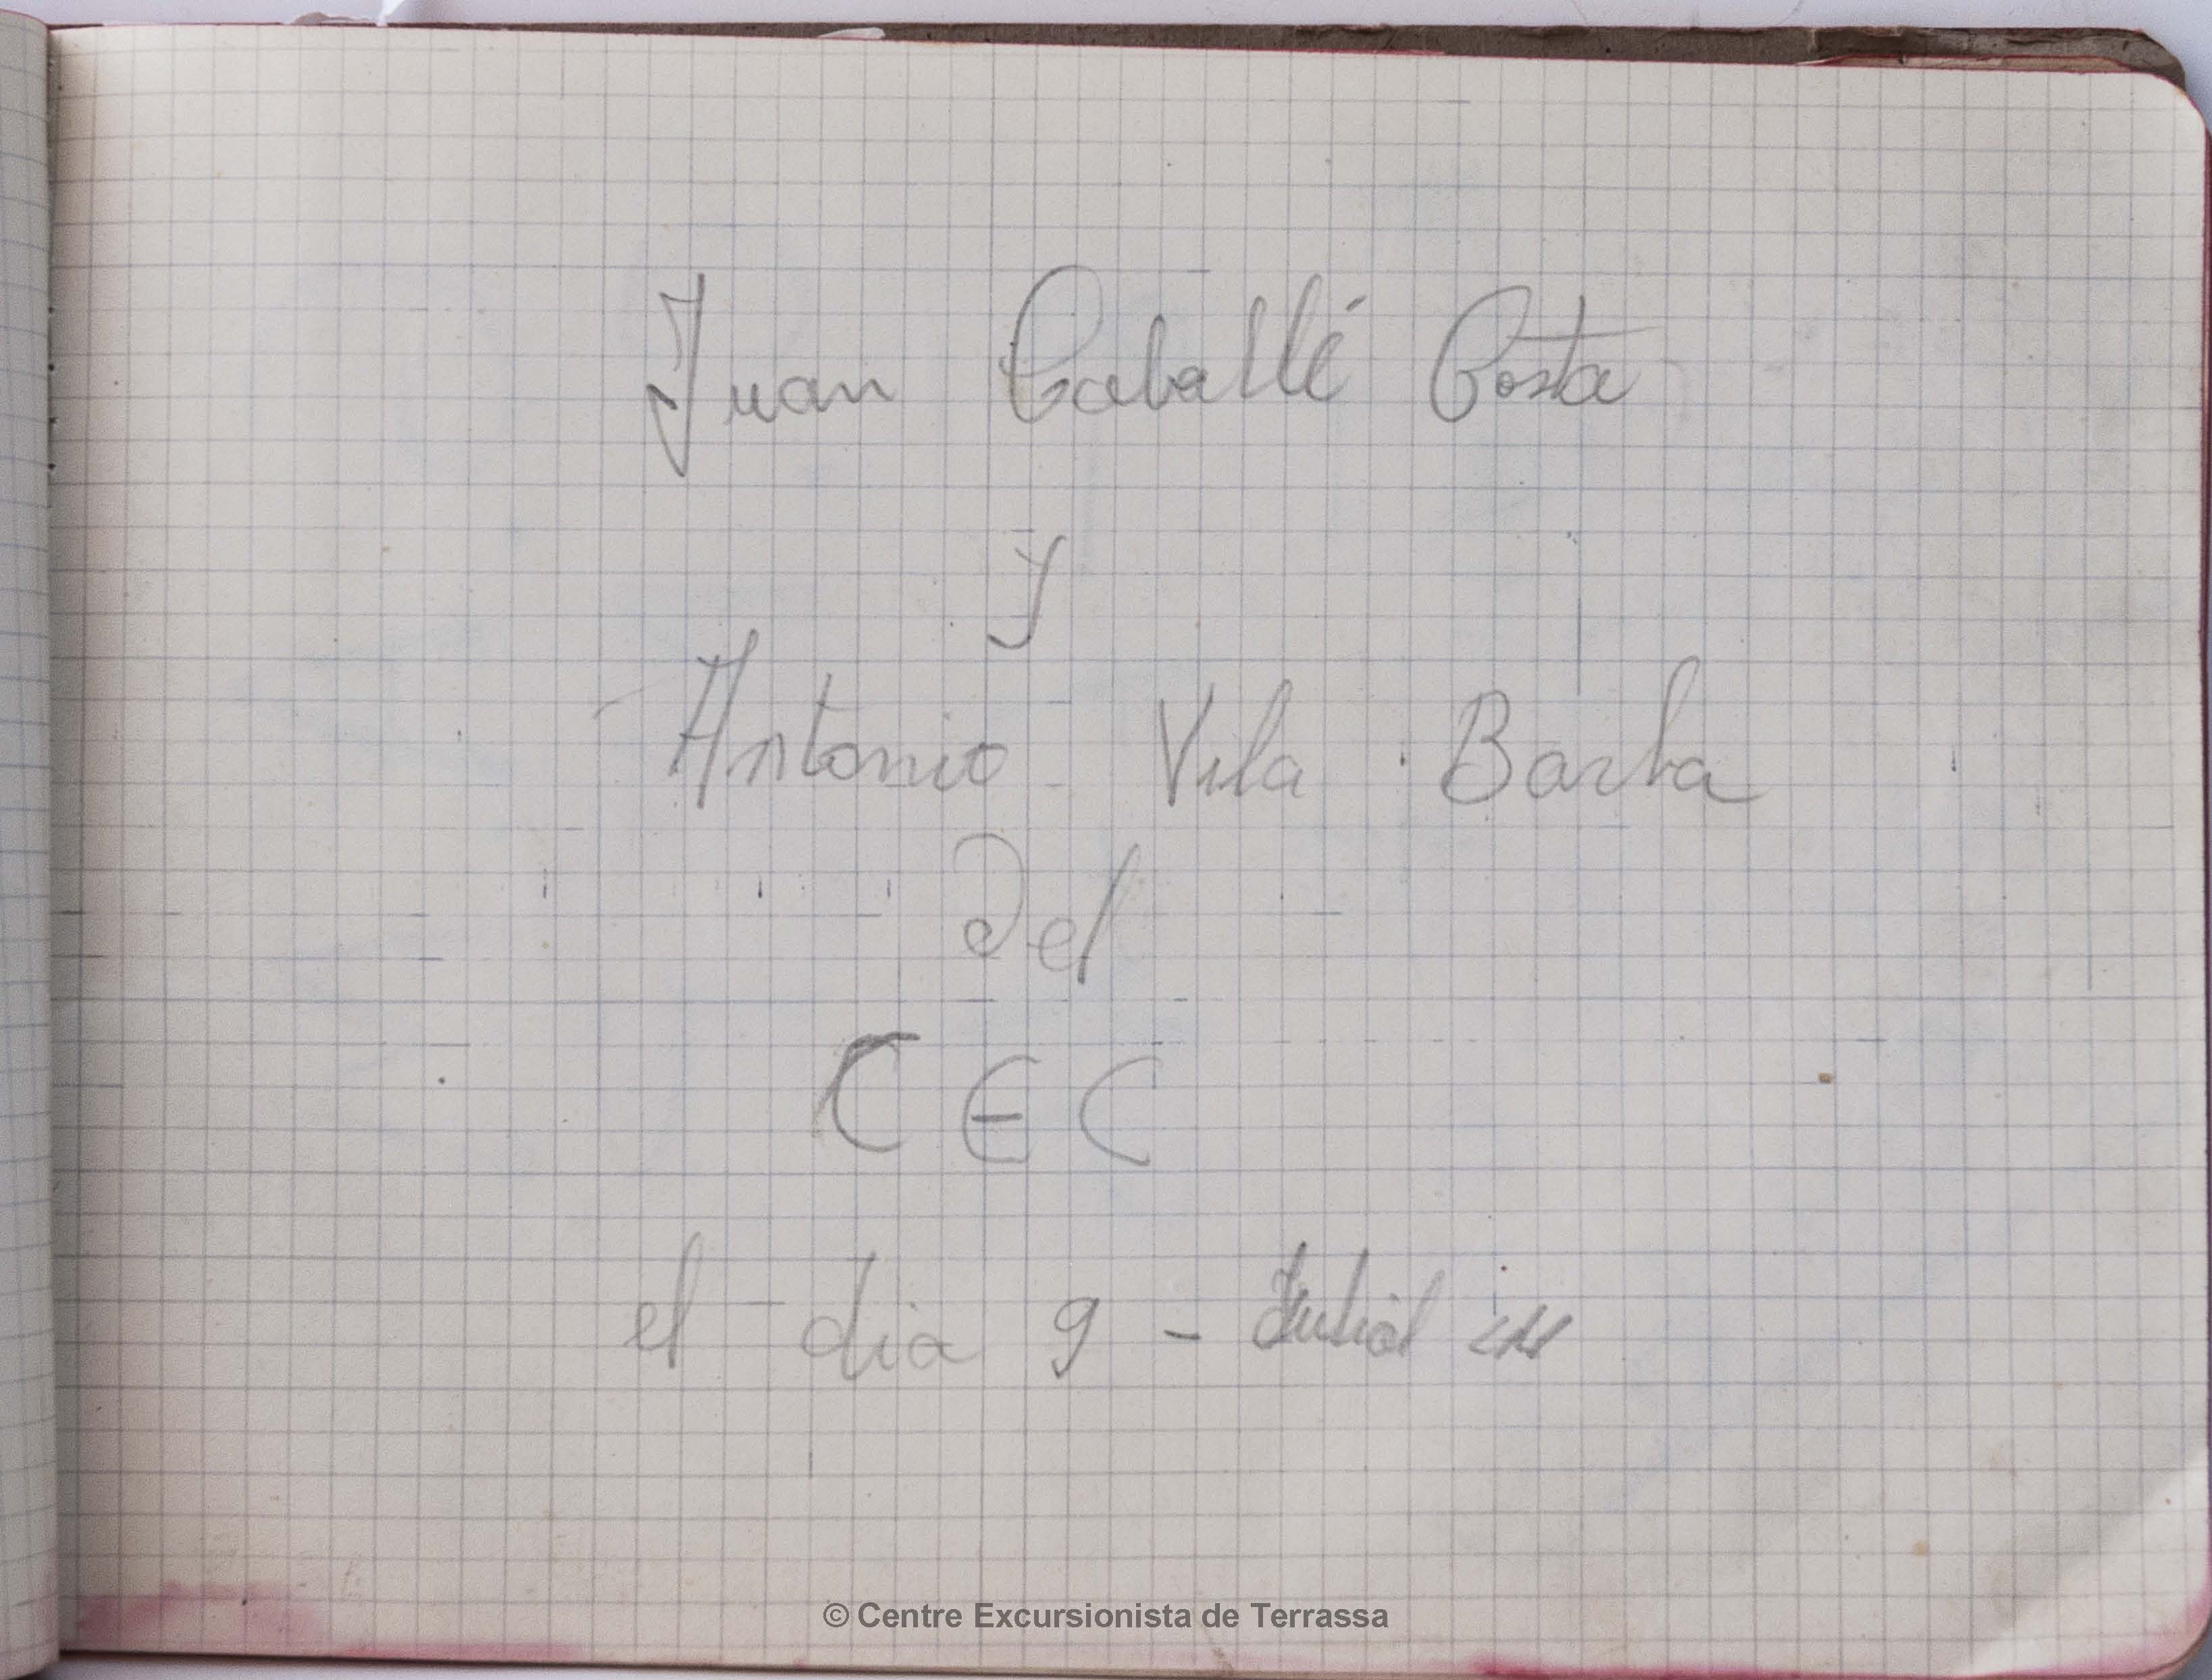 Juan Caballé Costa
y
Antonio Vila Barba
del
CEC
el dia 9 -
© Centre Excursionista de Terrassa